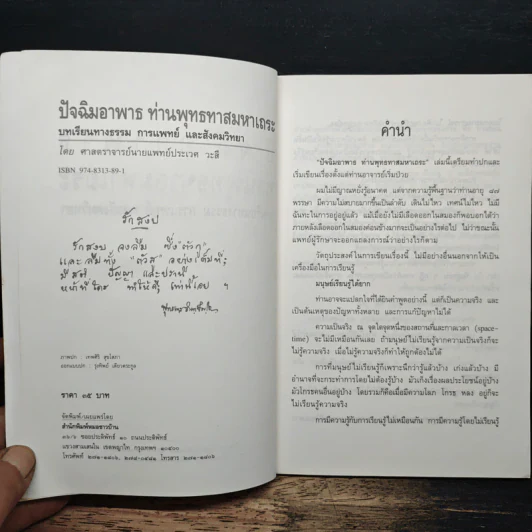 ปัจฉิมอาพาธ ท่านพุทธทาสมหาเถระ
บทเรียนทางธรรม การแพทย์ และสังคมวิทยา
โดย ศาสตราจารย์นายแพทย์ประเวศ วะสี
ISBN 974-8313-89-1
รักสงบ
รักสงบ จงลืม ซึ่ง "ตัวกู"
และลืมทั้ง "ตัวสู"
มีสติ ปัญญา
หน้าที่ใด ทำให้ดี เท่านี้เอย ฯ
ภาพปก : เทพศิริ สุขโสภา
ออกแบบปก :
ราคา ๓๕ บาท
จัดพิมพ์/เผยแพร่โดย
สำนักพิมพ์หมอชาวบ้าน
ซอยประดิพัทธ์ ๑๐ ถนนประดิพัทธ์
แขวงสามเสนใน เขตพญาไท กรุงเทพฯ ๑๐๔๐๐
โทรศัพท์ โทรสาร
คำนำ
"ปัจฉิมอาพาธ ท่านพุทธทาสมหาเถระ" เล่มนี้เตรียมทำปกและ
เริ่มเขียนเรื่องตั้งแต่ท่านอาจารย์เริ่มป่วย
ผมไม่มีญาณหยั่งรู้อนาคต แต่จากความรู้พื้นฐานว่าท่านอายุ ๘๗
พรรษา มีความไม่สบายมากขึ้นเป็นลำดับ เดินไม่ไหว เทศน์ไม่ไหว ไม่มี
ฉันทะในการอยู่อยู่แล้ว แม้เมื่อยังไม่มีเลือดออกในสมองก็พอบอกได้ว่า
ภายหลังเลือดออกในสมองค่อนข้างมากจะเป็นอย่างไรต่อไป ไม่ว่าขณะนั้น
แพทย์ผู้รักษาจะออกแถลงการณ์ว่าอย่างไรก็ตาม
วัตถุประสงค์ในการเขียนเรื่องนี้ ไม่มีอย่างอื่นนอกจากให้เป็น
เครื่องมือในการเรียนรู้
มนุษย์เรียนรู้ได้ยาก
ท่านอาจจะแปลกใจที่ได้ยินคำพูดอย่างนี้ แต่ก็เป็นความจริง และ
เป็นต้นเหตุของปัญหาทั้งหลาย และการแก้ปัญหาไม่ได้
ความเป็นจริง ณ จุดใดจุดหนึ่งของสถานที่และกาลเวลา (space-
time) จะไม่มีเหมือนกันเลย ถ้ามนุษย์ไม่เรียนรู้จากความเป็นจริงก็จะ
ไม่รู้ความจริง เมื่อไม่รู้ความจริงก็ทำให้ถูกต้องไม่ได้
การที่มนุษย์ไม่เรียนรู้ก็เพราะนึกว่ารู้แล้วบ้าง เก่งแล้วบ้าง มี
อำนาจที่จะกระทำการโดยไม่ต้องรู้บ้าง มัวเกี่ยงเรื่องผลประโยชน์อยู่บ้าง
มัวโกรธคนอื่นอยู่บ้าง โดยรวมก็คือเมื่อมีความโลภ โกรธ หลง อยู่ก็จะ
ไม่เรียนรู้ความจริง
การมีความรู้กับการเรียนรู้ไม่เหมือนกัน การมีความรู้โดยไม่เรียนรู้